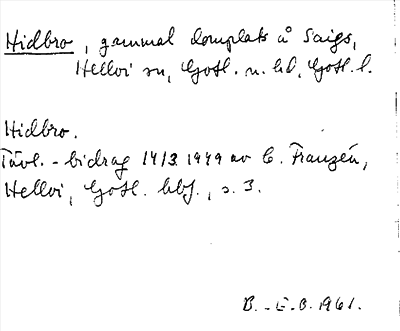 Hidbro, gammal domplats å Saigs,
Hellvi sn, Gotl. n. hd, Gotl. l.
Hidbro.
Tävl.-bidrag 14/3 1949 av C. Franzén,
Hellvi, Gotl. hbf., s. 3.
B.-E.B. 1961.